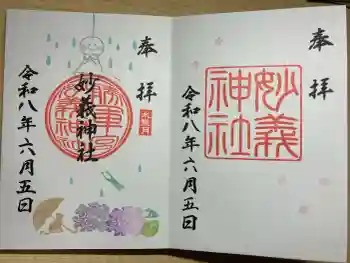 奉拝
妙義神社
水無月
令和八年六月五日
奉拝
妙義神社
令和八年六月五日